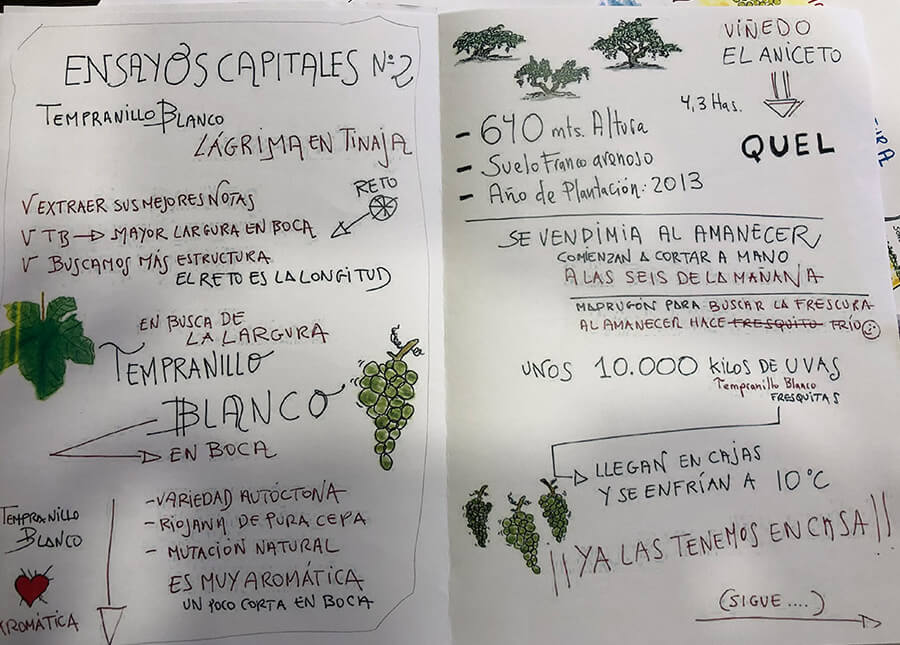 ENSAYOS CAPITALES Nº2
TEMPRANILLO BLANCO
LÁGRIMA EN TINAJA
RETO
V EXTRAER SUS MEJORES NOTAS
V TB → MAYOR LARGURA EN BOCA
V BUSCAMOS MÁS ESTRUCTURA
EL RETO ES LA LONGITUD
EN BUSCA DE
LA LARGURA
TEMPRANILLO
BLANCO
EN BOCA
TEMPRANILLO
BLANCO
AROMÁTICA
-VARIEDAD AUTÓCTONA
-RIOJANA DE PURA CEPA
- MUTACIÓN NATURAL
ES MUY AROMÁTICA
UN POCO CORTA EN BOCA
VIÑEDO
EL ANICETO
4,3 Has.
QUEL
- 640 mts. Altura
- Suelo Franco arenoso
- Año de Plantación: 2013
SE VENDIMIA AL AMANECER
COMIENZAN A CORTAR A MANO
A LAS SEIS DE LA MAÑANA
MADRUGÓN PARA BUSCAR LA FRESCURA
AL AMANECER HACE FRESQUITO FRÍO
UNOS 10.000 KILOS DE UVAS
Tempranillo Blanco
FRESQUITAS
LLEGAN EN CAJAS
Y SE ENFRÍAN A 10°C
¡¡YA LAS TENEMOS EN CASA!!
(SIGUE....)